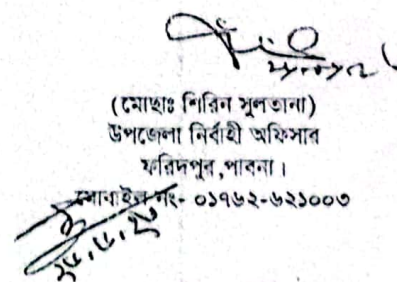 (মোছাঃ শিরিন সুলতানা)
উপজেলা নির্বাহী অফিসার
ফরিদপুর,পাবনা।
মোবাইল নং- ০১৭৬২-৬২১০০৩